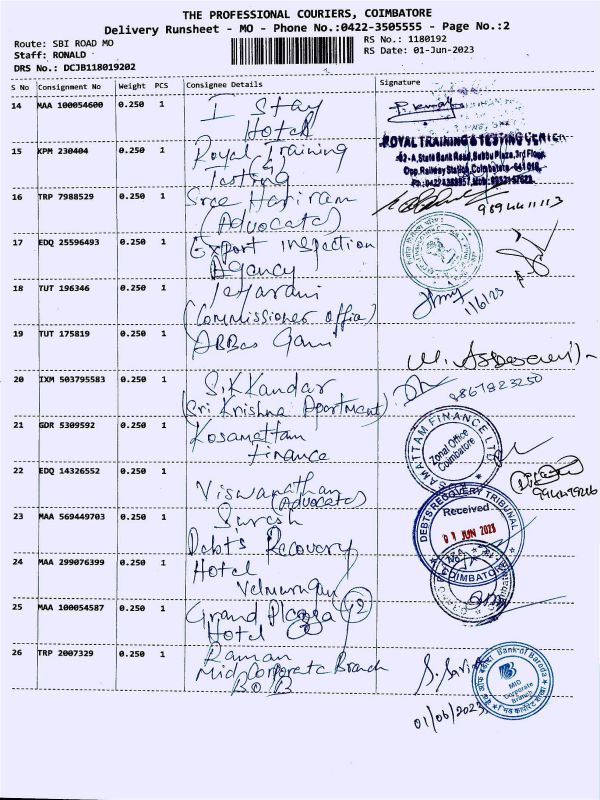 THE PROFESSIONAL COURIERS, COIMBATORE
Delivery Runsheet - MO - Phone No.:0422-3505555 - Page No.:2
Route: SBI ROAD MO
RS No.: 1180192
Staff: RONALD
RS Date: 01-Jun-2023
DRS No.: DCJB118019202
S No Consignment No Weight PCS Consignee Details Signature
14 MAA 100054600 0.250 1 I Stay
Hotel
15 KPM 230404 0.250 1 Royal Training
Testing
ROYAL TRAINING & TESTING CENTER
62-A, State Bank Road, Babbu Plaza, 3rd Floor,
Opp. Railway Station, Coimbatore - 641 018.
16 TRP 7988529 0.250 1 Sree Hariram
(Advocate)
9894411113
17 EDQ 25596493 0.250 1 Export inspection
Agency
18 TUT 196346 0.250 1
(Commissioner office)
1/6/23
19 TUT 175819 0.250 1 ABBas Gani
20 IXM 503795583 0.250 1 S.K Kandar
(Sri Krishna Apartment)
9867823250
21 GDR 5309592 0.250 1 Kosamattam
Finance
SAMATTAM FINANCE LTD
Zonal Office
Coimbatore
22 EDQ 14326552 0.250 1 Viswanathan
(Advocate)
23 MAA 569449703 0.250 1 Suresh
Debts Recovery
DEBTS RECOVERY TRIBUNAL
Received
01 JUN 2023
COIMBATORE
24 MAA 299076399 0.250 1 Hotel
Velmurugan
25 MAA 100054587 0.250 1 Grand Plazza
Hotel
26 TRP 2007329 0.250 1 Raman
Mid Corporate Branch
B.O.B
Bank of Baroda
MID
Corporate
Branch
01/06/2023